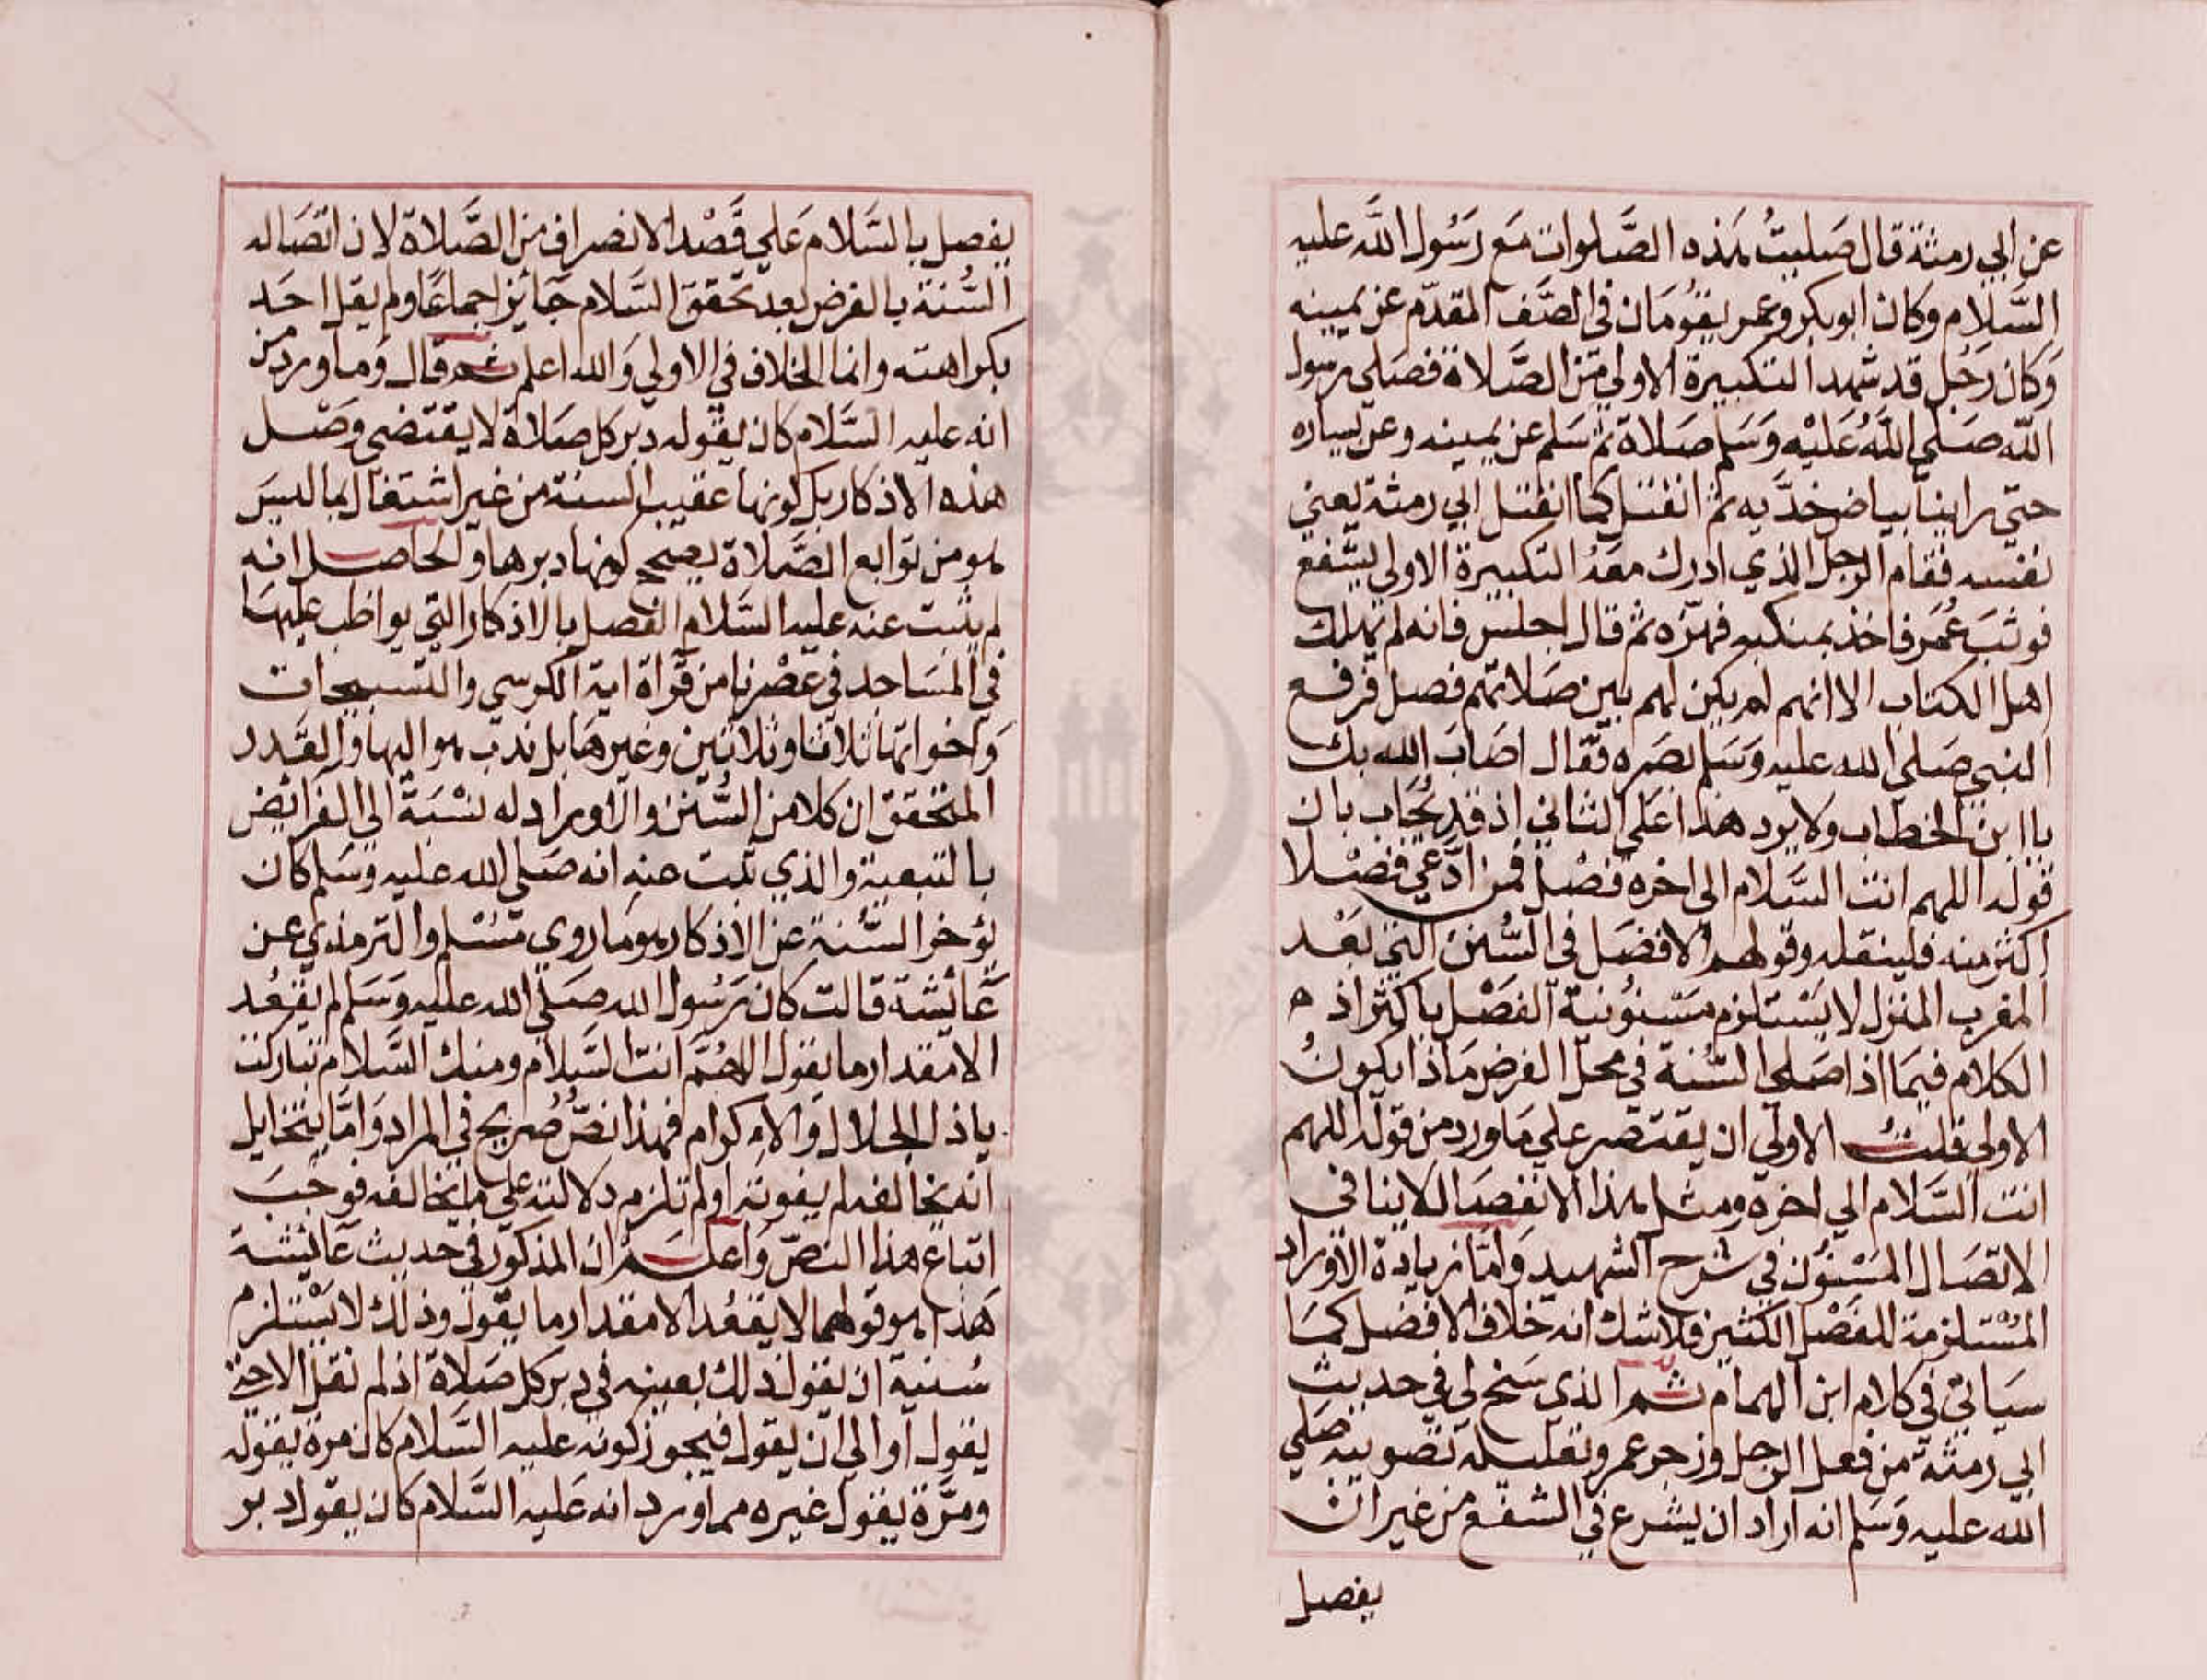 عن ابي رمثة قال صليت هذه الصلوات مع رَسُول اللَّه عليه
السَّلام وكان ابو بكر وعمر يقُومَان في الصَّف المقدّم عن يمينه
وَكان رَجُل قد شهد التكبيرة الاولي من الصَّلاة فصَلي رسول
الله صَلي اللَّهُ عَليْه وَسَلم صَلاة ثم سَلم عن يمينه وعن يساره
حتي راينا بياض خدَّيه ثم انفتل كما انفتل ابي رمثة يعني
نفسه فقام الرجل الذي ادرك معَهُ التكبيرة الاولي ليشفع
فوثبَ عُمَر فاخذ بمنكبه فهزّه ثم قال اجلس فانه لم يهلك
اهل الكتاب الا انهم لم يكن لهم بين صَلاتهم فصل فرفع
النبي صَلي الله عليه وَسَلم بصَره فقال اصَابَ الله بك
يا ابن الخطاب ولا يرد هذا علي الثاني اذ قد يُجَاب بان
قوله اللهم انت السَّلام الي اخره فصْل فمن ادَّعي فصْلا
اكثر منه فلينقله وقولهم الافضَل في السُّنن التي بَعْد
المغرب المنزل لا يَسْتلزم مَسْنونية الفصْل باكثر اذ ه
الكلام فيمَا اذا صَلي السُّنة في محل الفرض مَاذا يكونُ
الاولي قلتُ الاولي ان يقتصر علي مَا ورد من قوله اللهم
انت السَّلام الي اخره ومثل هذا الانفصَال لا ينافي
الاتصَال المسْنون في شرح الشهيد وَامَّا زيادة الاوراد
المُسْتلزمة للفصْل الكثير فلا شك انه خلاف الافضل كمَا
سيَاتي في كلام ابن الهمام ثم الذي سَنح لي في حديث
ابي رمثة من فعل الرجل وزجر عمر وتعليله تصويبه صَلي
الله عليه وَسَلم انه اراد ان يشرع في الشفع من غير ان
يفصل
يفصل بالسَّلام عَلي قصْد الانصراف من الصَّلاة لان اتصَاله
السُّنة بالفرض بعد تحقق السَّلام جَائز اجماعًا ولم يقل احَد
بكراهته وانما الخلاف في الاولي وَالله اعلم ثم قال وَما ورد من
انه عليه السَّلام كان يقوله دبر كل صَلاة لا يقتضي وَصْل
هذه الاذكار بل كونها عقيب السنة من غير اشتغال بما ليسَ
هو من توابع الصَّلاة يصح كونها دبرها والحَاصل انه
لم يثبت عنه عليه السَّلام الفصل بالاذكار التي يواظب عليهَا
في المسَاجد في عصْرنا من قرآة اية الكرسي والتسبيحات
وَاخواتها ثلاثا وثلاثين وغيرهَا بل ندب هو اليها والقدر
المتحقق ان كلا من السُّنن والاوراد له نسْبَة الي الفرائض
بالتبعية والذي ثبت عنه انه صَلي الله عليه وسَلم كان
يؤخر السُّنة عن الاذكار هو مَا روي مسْلم والترمذي عن
عَائشة قالت كان رَسُول الله صَلي الله عليه وَسَلم لم يقعُد
الا مقدار ما يقول اللهُمَّ انت السَّلام ومنك السَّلام تباركت
ياذا الجلال وَالاكرام فهذا نصّ صَريح في المراد وَامَّا يتخايل
انه يخالفه لم يفوته او لم تلزم دلالته علي ما يخالفه فوجبَ
اتباع هذا النصّ وَاعلم ان المذكور في حديث عَائشة
هَذا هو قولها لا يقعُد الا مقدار ما يقول وذلك لا يَسْتلزم
سُنية ان يقول ذلك بعينه في دبر كل صَلاة اذ لم تقل الا حتي
يقول او الي ان يقول فيجوز كونه عليه السَّلام كان مرة يقوله
ومرَّة يقول غيره مما ورد انه عَليه السَّلام كان يقول دبر